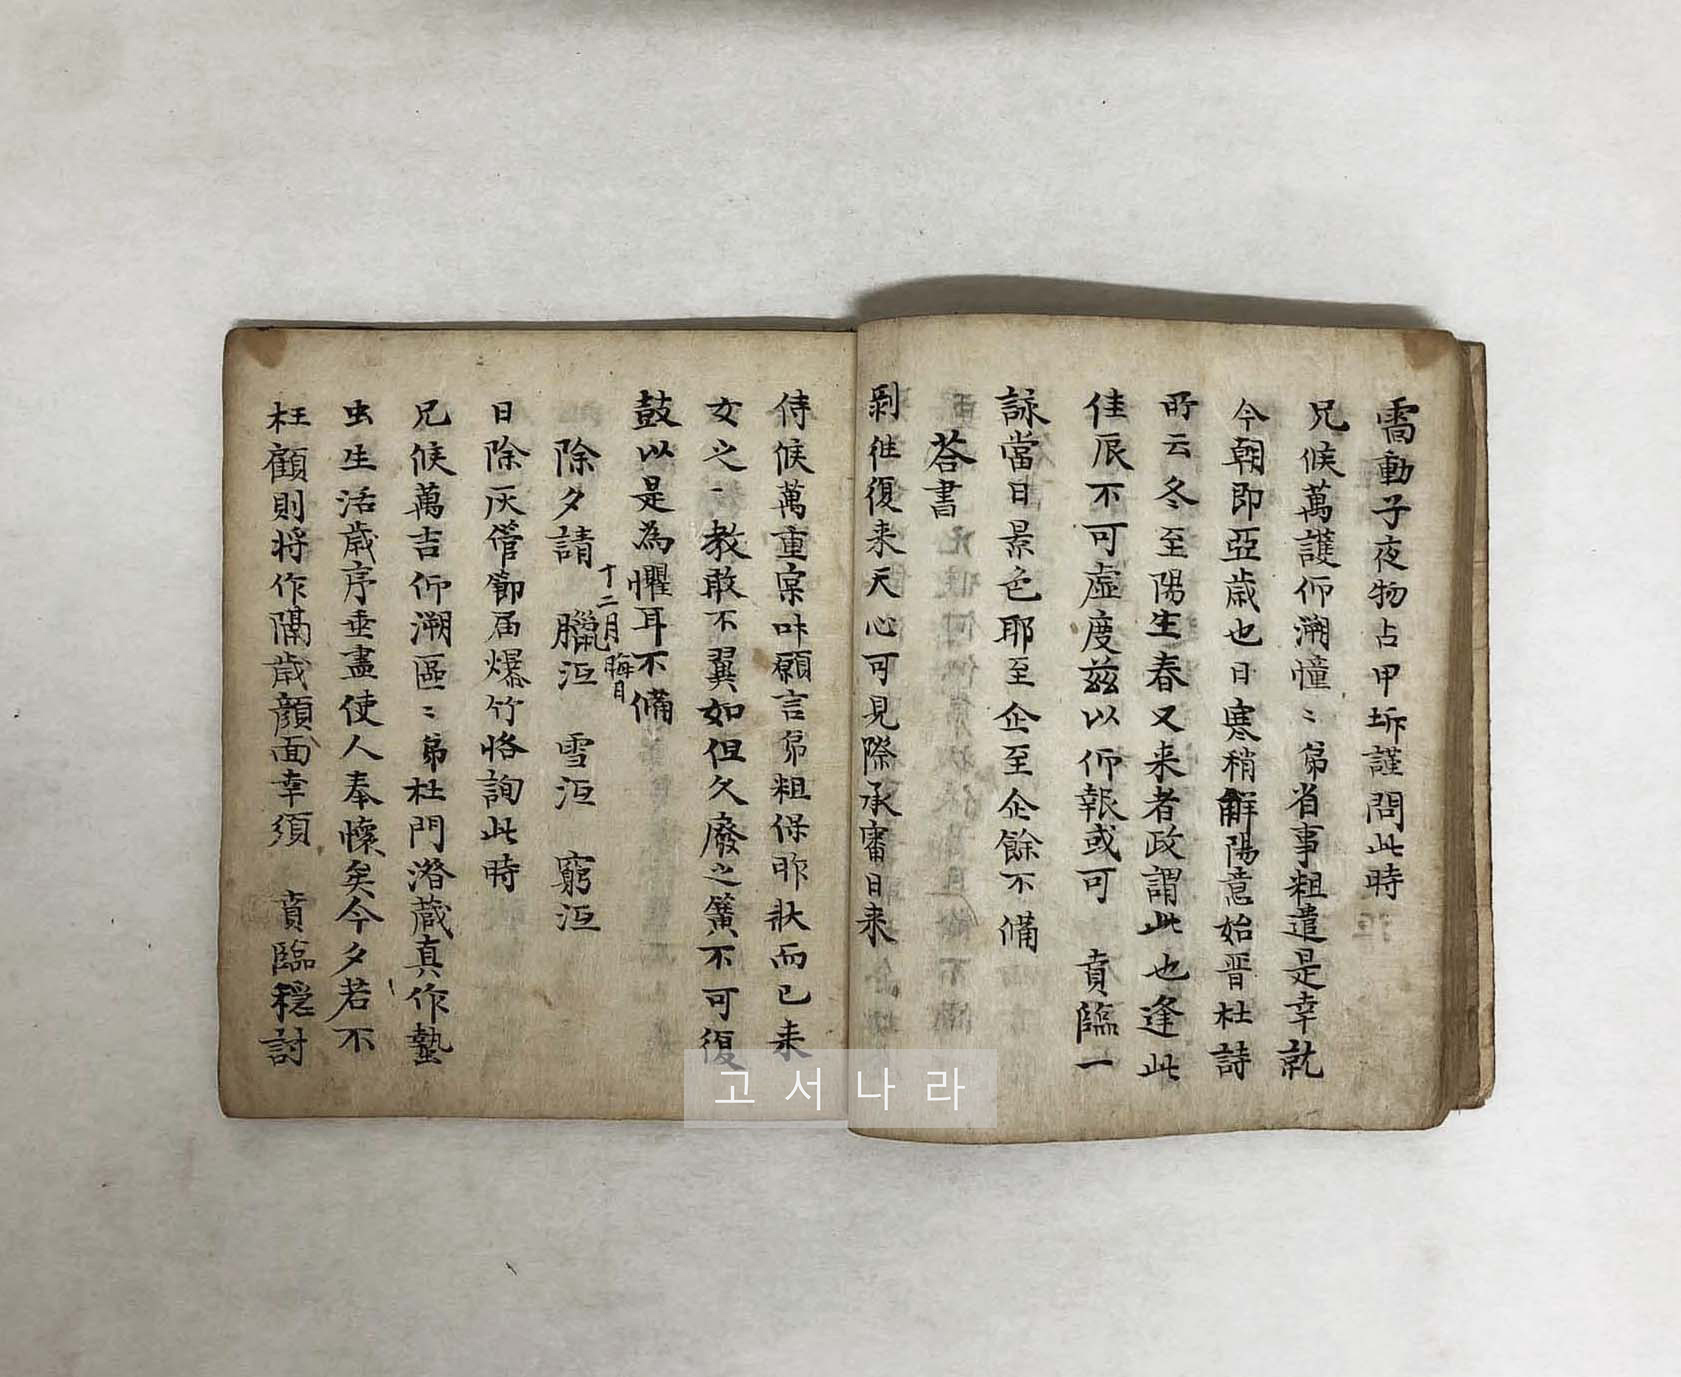 雷動子夜物占甲坼謹問此時
兄候萬護仰溯憧〻弟省事粗遣是幸就
今朝即亞歲也日寒稍觧陽意始晋杜詩
所云冬至陽生春又来者政謂此也逢此
佳辰不可虛度玆以仰報或可 賁臨一
詠當日景色耶至企至企餘不備
荅書
剥徃復来天心可見際承審日来
侍候萬重寀叶願言弟粗保昨狀而已来
女之一教敢不翼如但久廢之簧不可復
鼓以是為懼耳不備
除夕請 臘沍 雪沍 窮沍
十二月晦日
日除灰管節届爆竹恪詢此時
兄候萬吉仰溯區〻弟杜門潜蔵真作蟄
虫生活歲序垂盡使人奉懷矣今夕若不
枉顧則将作隔歲顏面幸須 賁臨穏討
고서나라